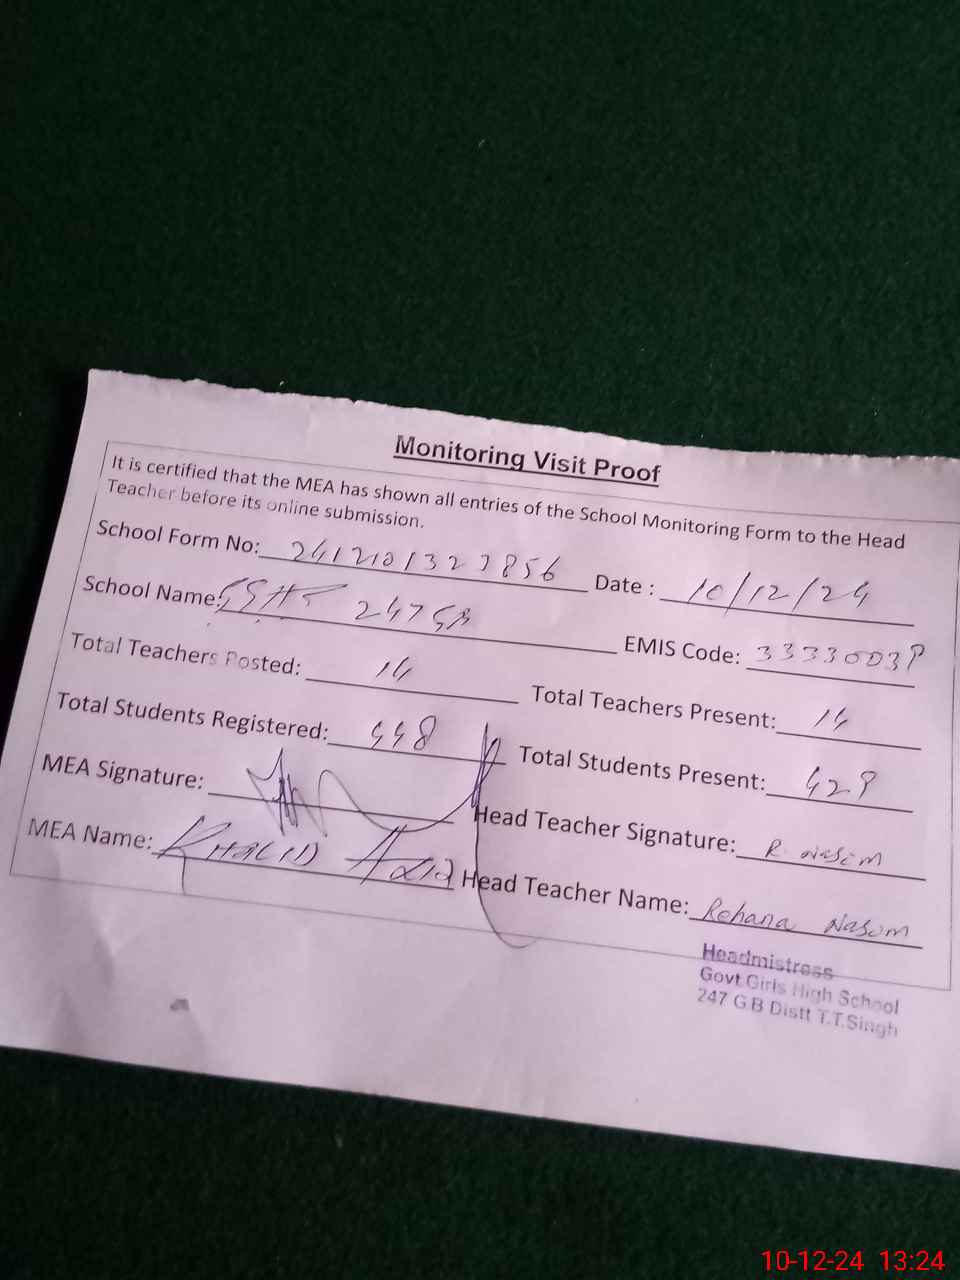 Monitoring Visit Proof
It is certified that the MEA has shown all entries of the School Monitoring Form to the Head
Teacher before its online submission.
School Form No: 2412101323856 Date : 10/12/24
School Name: GGHS 247 GB EMIS Code: 33330039
Total Teachers Posted: 14 Total Teachers Present: 14
Total Students Registered: 448 Total Students Present: 429
MEA Signature: Head Teacher Signature: R Nasem
MEA Name: KHALID Head Teacher Name: Rehana Nasem
Headmistress
Govt Girls High School
247 G.B Distt T.T.Singh
10-12-24 13:24